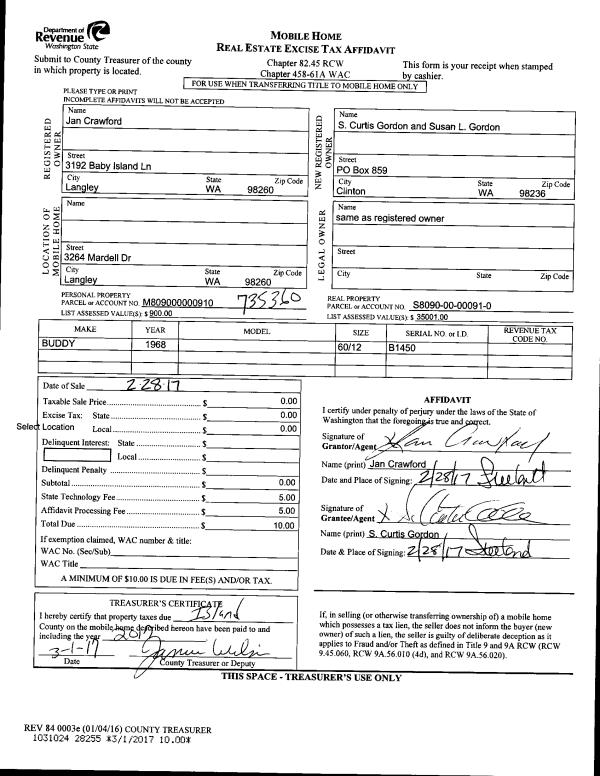 Department of
Revenue
Washington State
MOBILE HOME
REAL ESTATE EXCISE TAX AFFIDAVIT
Submit to County Treasurer of the county
in which property is located.
Chapter 82.45 RCW
Chapter 458-61A WAC
This form is your receipt when stamped
by cashier.
FOR USE WHEN TRANSFERRING TITLE TO MOBILE HOME ONLY
PLEASE TYPE OR PRINT
INCOMPLETE AFFIDAVITS WILL NOT BE ACCEPTED
REGISTERED OWNER
Name
Jan Crawford
Street
3192 Baby Island Ln
City State Zip Code
Langley WA 98260
NEW REGISTERED OWNER
Name
S. Curtis Gordon and Susan L. Gordon
Street
PO Box 859
City State Zip Code
Clinton WA 98236
LOCATION OF MOBILE HOME
Name
Street
3264 Mardell Dr
City State Zip Code
Langley WA 98260
LEGAL OWNER
Name
same as registered owner
Street
City State Zip Code
PERSONAL PROPERTY
PARCEL or ACCOUNT NO. M809000000910 735360
LIST ASSESSED VALUE(S): $ 900.00
REAL PROPERTY
PARCEL or ACCOUNT NO. S8090-00-00091-0
LIST ASSESSED VALUE(S): $ 35001.00
MAKE YEAR MODEL SIZE SERIAL NO. or I.D. REVENUE TAX CODE NO.
BUDDY 1968 60/12 B1450
Date of Sale 2-28-17
Taxable Sale Price $ 0.00
Excise Tax: State $ 0.00
Select Location Local $ 0.00
Delinquent Interest: State $
Local $
Delinquent Penalty $
Subtotal $ 0.00
State Technology Fee $ 5.00
Affidavit Processing Fee $ 5.00
Total Due $ 10.00
If exemption claimed, WAC number & title:
WAC No. (Sec/Sub)
WAC Title
A MINIMUM OF $10.00 IS DUE IN FEE(S) AND/OR TAX.
AFFIDAVIT
I certify under penalty of perjury under the laws of the State of
Washington that the foregoing is true and correct.
Signature of
Grantor/Agent Jan Crawford
Name (print) Jan Crawford
Date and Place of Signing: 2/28/17 Freeland
Signature of
Grantee/Agent X
Name (print) S. Curtis Gordon
Date & Place of Signing: 2/28/17 Freeland
TREASURER'S CERTIFICATE
I hereby certify that property taxes due Island
County on the mobile home described hereon have been paid to and
including the year 2017
3-1-17
Date County Treasurer or Deputy
If, in selling (or otherwise transferring ownership of) a mobile home
which possesses a tax lien, the seller does not inform the buyer (new
owner) of such a lien, the seller is guilty of deliberate deception as it
applies to Fraud and/or Theft as defined in Title 9 and 9A RCW (RCW
9.45.060, RCW 9A.56.010 (4d), and RCW 9A.56.020).
THIS SPACE - TREASURER'S USE ONLY
REV 84 0003e (01/04/16) COUNTY TREASURER
1031024 28255 *3/1/2017 10.00*